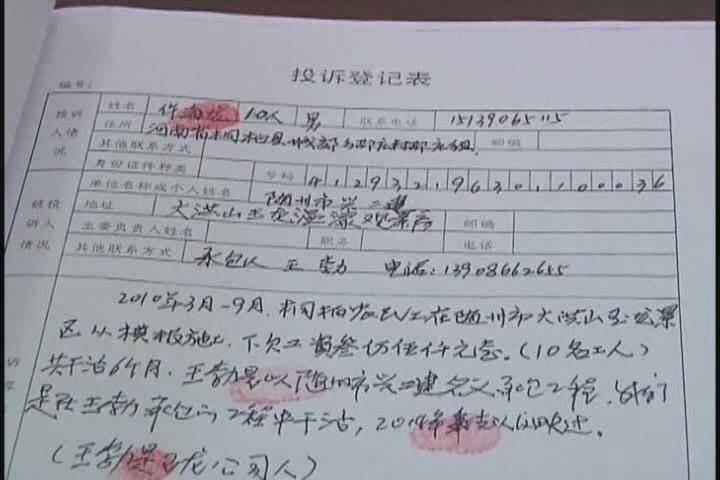 投诉登记表
编号：
投诉人情况 姓名 10人 男 联系电话 15139065115
住所 河南省桐柏县城郊乡 邮编
其他联系方式
身份证件种类 号码 412932196301100036
被投诉人情况 单位名称或个人姓名 随州市兴二建
地址 大洪山玉龙 邮编
主要负责人姓名 职务 电话
其他联系方式 承包人 王勃 电话：13908662655
2010年3月-9月，桐柏农民工在随州市大洪山玉龙景
区从模板施工，下欠工资叁仟元。（10名工人）
共干活6个月，王勃是以随州市兴二建名义承包工程，我们
是在王勃承包的工程中干活，
（王勃是玉龙公司人）